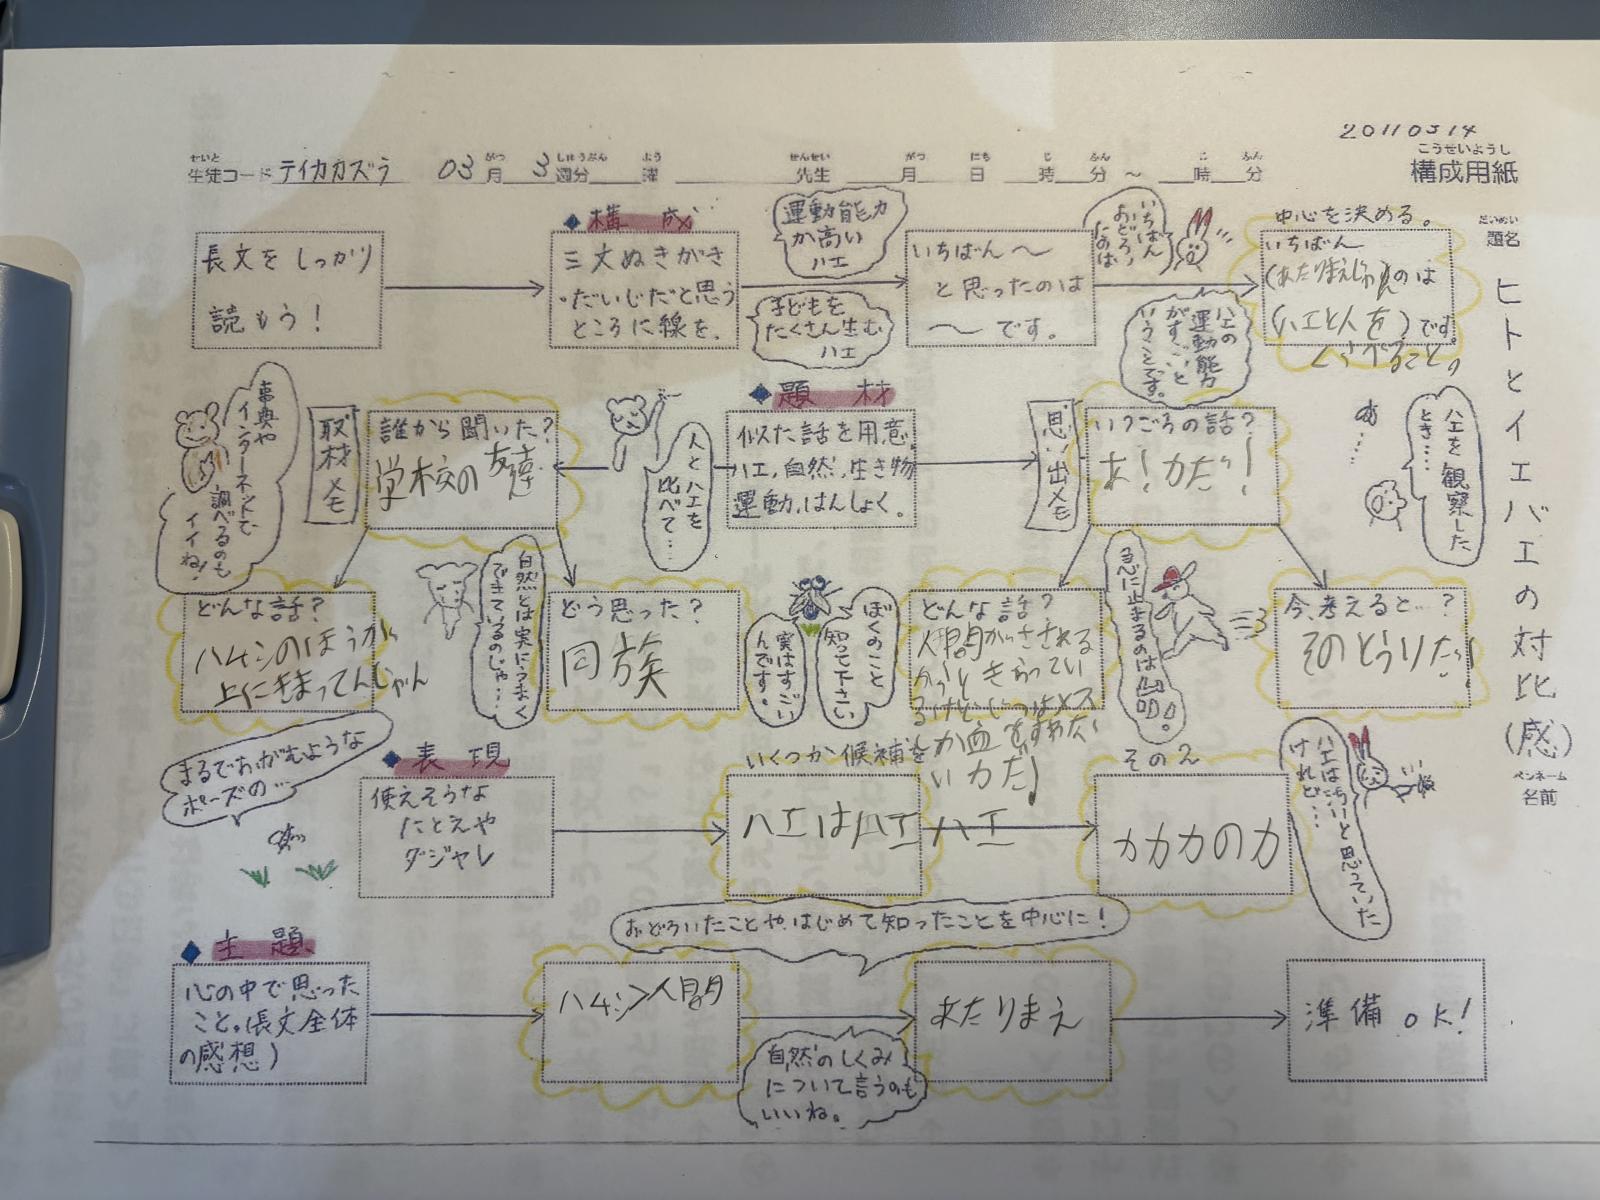 20110314
こうせいようし
構成用紙
せいと がつ しゅうぶん よう せんせい がつ にち じ ふん じ ふん
生徒コード テイカカズラ 03月 3週分 曜 先生 月 日 時 分 ～ 時 分
だいめい
題名
ヒトとイエバエの対比(感)
ペンネーム
名前
長文をしっかり
読もう!
◆構成
三文ぬきがき
・だいじだと思う
ところに線を。
運動能力
が高い
ハエ
子どもを
たくさん生む
ハエ
いちばん～
と思ったのは
～です。
いちばん
おどろい
たのは
ハエの
運動能力
がすごいと
いうことです。
中心を決める。
いちばん
(あたりまえじゃんのは
(ハエと人を)です。
くらべること。
◆題材
似た話を用意。
ハエ,自然,生き物
運動,はんしょく。
思い出メモ
いつごろの話?
あ!カだ!
ハエを観察した
とき……
取材メモ
誰から聞いた?
学校の友達
人とハエを
比べて…
事典や
インターネットで
調べるのも
イイね!
どんな話?
ハムシのほうが
上にきまってんじゃん
自然とは実にうまく
できているのじゃ…
どう思った?
同族
ぼくのこと
知って下さい
実はすごい
んです。
どんな話?
人間がさされる
るけどじつはメス
か血をすわな
いカだ
急に止まるのは
今、考えると…?
そのとうりだ
◆表現
使えそうな
たとえや
ダジャレ
まるでおがむような
ポーズの…
いくつか候補を
ハエはハエ ハエ
その2
カカカのカ
ハエは
と思っていた
けれど…
おどろいたことや、はじめて知ったことを中心に!
◆主題
心の中で思った
こと。(長文全体
の感想)
ハムシ>人間
自然のしくみ
について言うのも
いいね。
あたりまえ
準備OK!